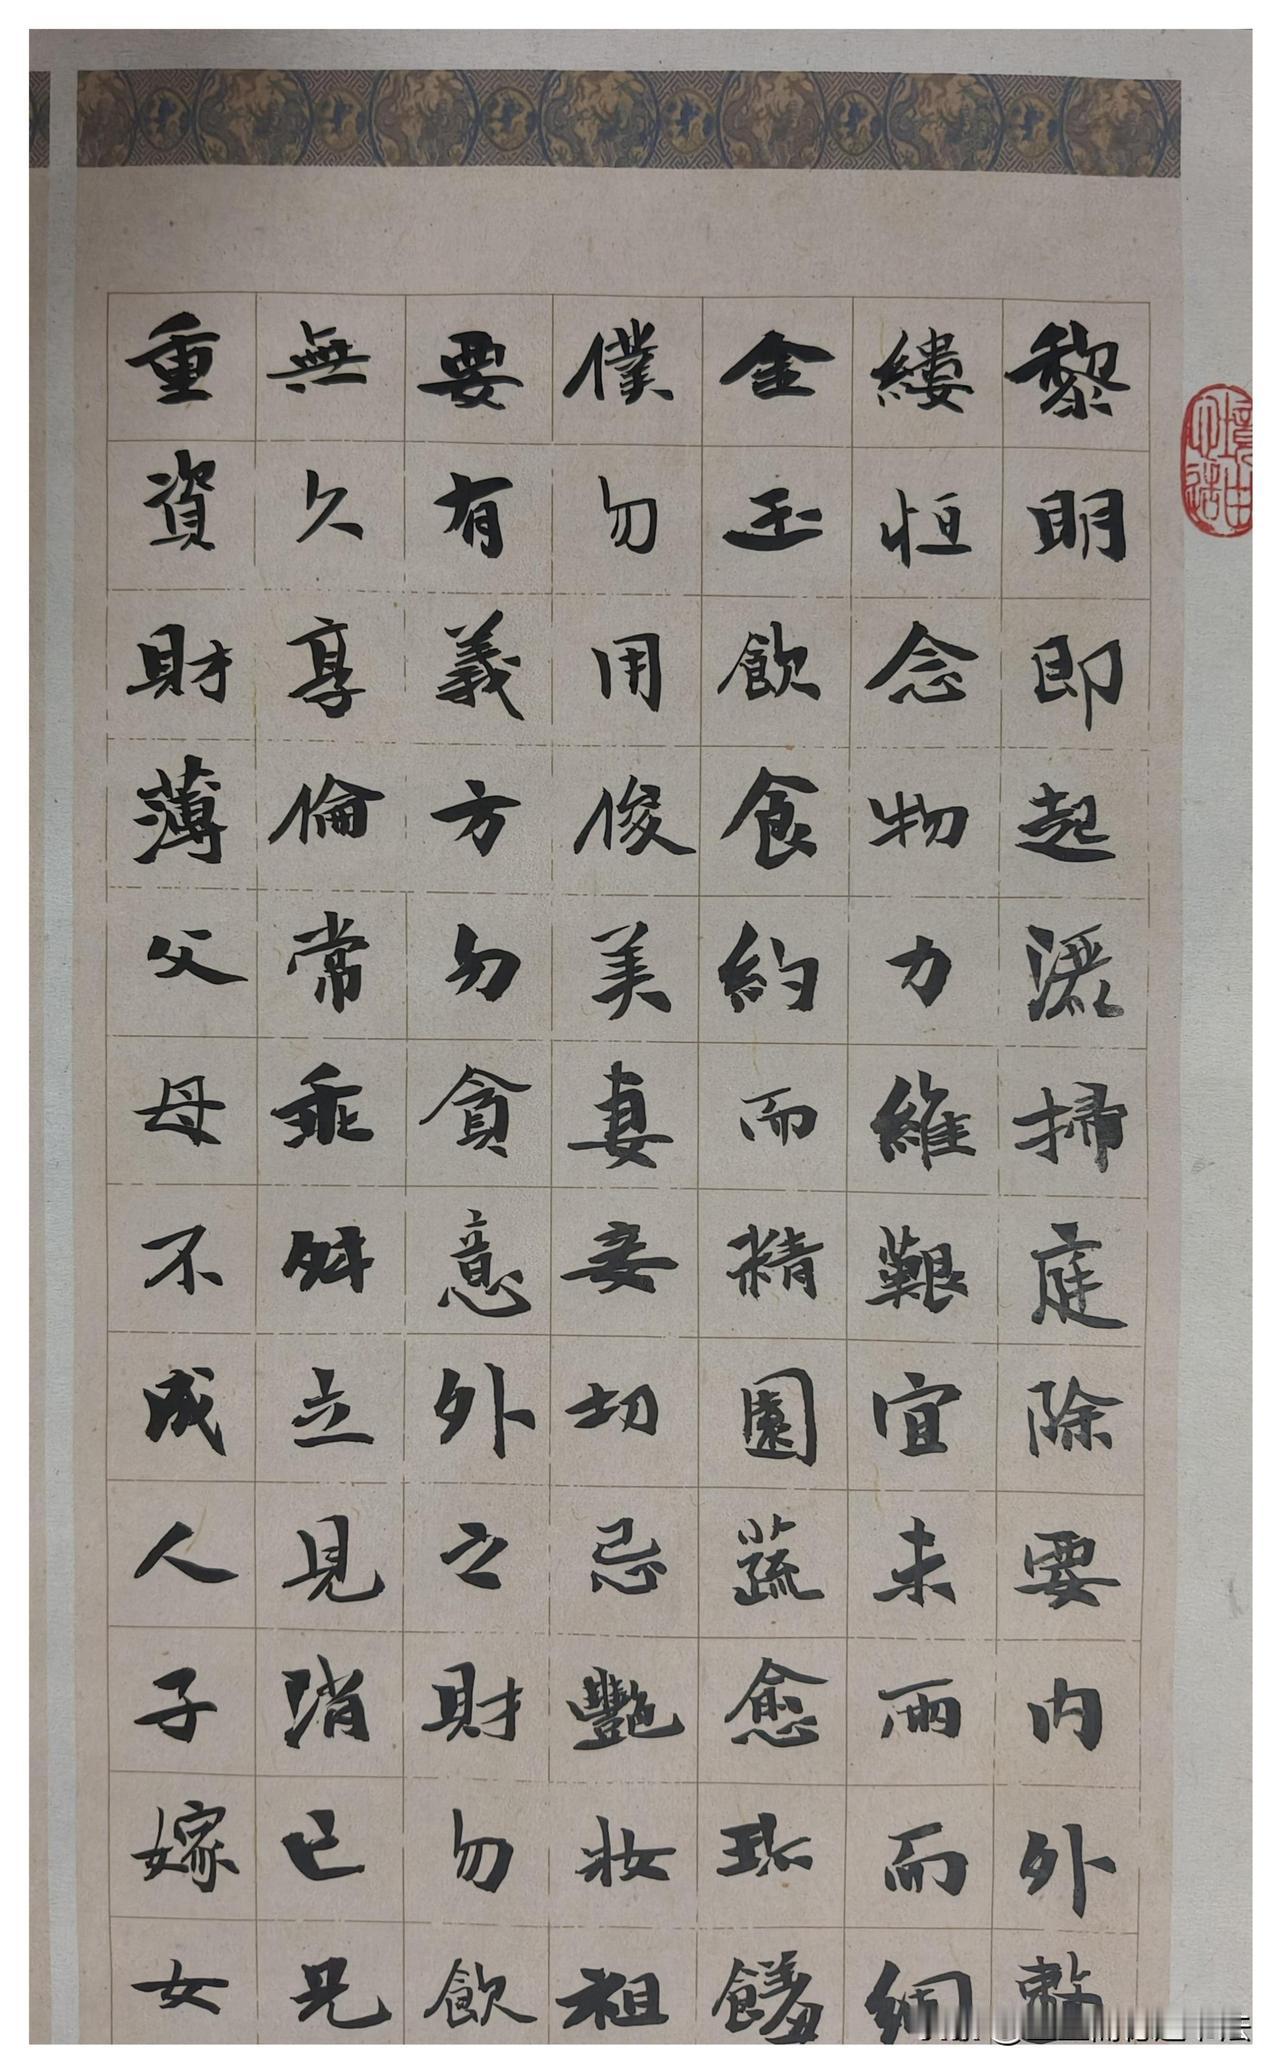 黎明即起灑掃庭除要內外整
縷恒念物力維艱宜未雨而綢
金玉飲食約而精園蔬愈珎饈
僕勿用俊美妻妾切忌艷妝祖
要有義方勿貪意外之財勿飲
無久享倫常乖舛立見消亡兄
重資財薄父母不成人子嫁女